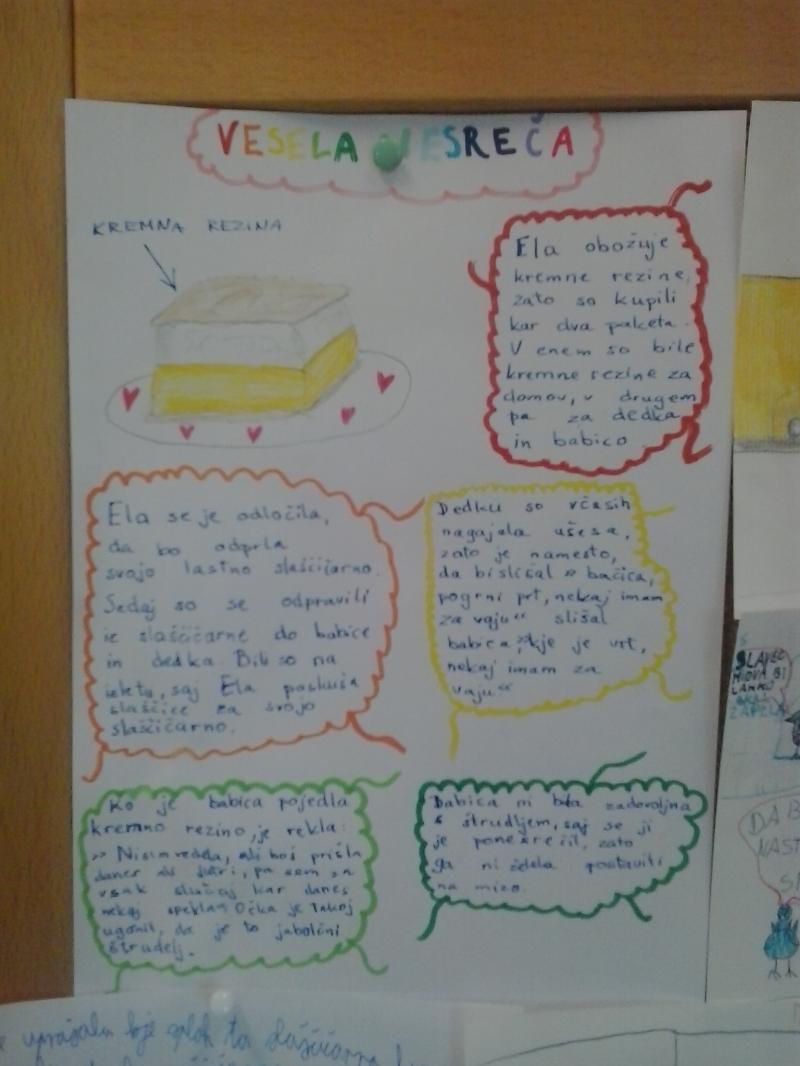 VESELA NESREČA
KREMNA REZINA
Ela obožuje
kremne rezine,
zato so kupili
kar dva paketa.
V enem so bile
kremne rezine za
domov, v drugem
pa za dedka
in babico
Ela se je odločila,
da bo odprla
svojo lastno slaščičarno.
Sedaj so se odpravili
iz slaščičarne do babice
in dedka. Bili so na
izletu, saj Ela poskuša
slaščice za svojo
slaščičarno.
Dedku so včasih
nagajala ušesa,
zato je namesto,
da bi slišal » bačica,
pogrni prt, nekaj imam
za vaju“ slišal
babica, »kje je vrt,
nekaj imam za
vaju“
Ko je babica pojedla
kremno rezino, je rekla:
» Nisem vedela, ali boš prišla
danes ali jutri, pa sem za
vsak slučaj kar danes
nekaj spekla“ Očka je takoj
ugonil, da je to jabolčni
štrudelj.
Babica ni bila zadovoljna
s štrudljem, saj se ji
je ponesrečil, zato
ga ni želela postaviti
na mizo.
ZAPELA
DA B
NAST